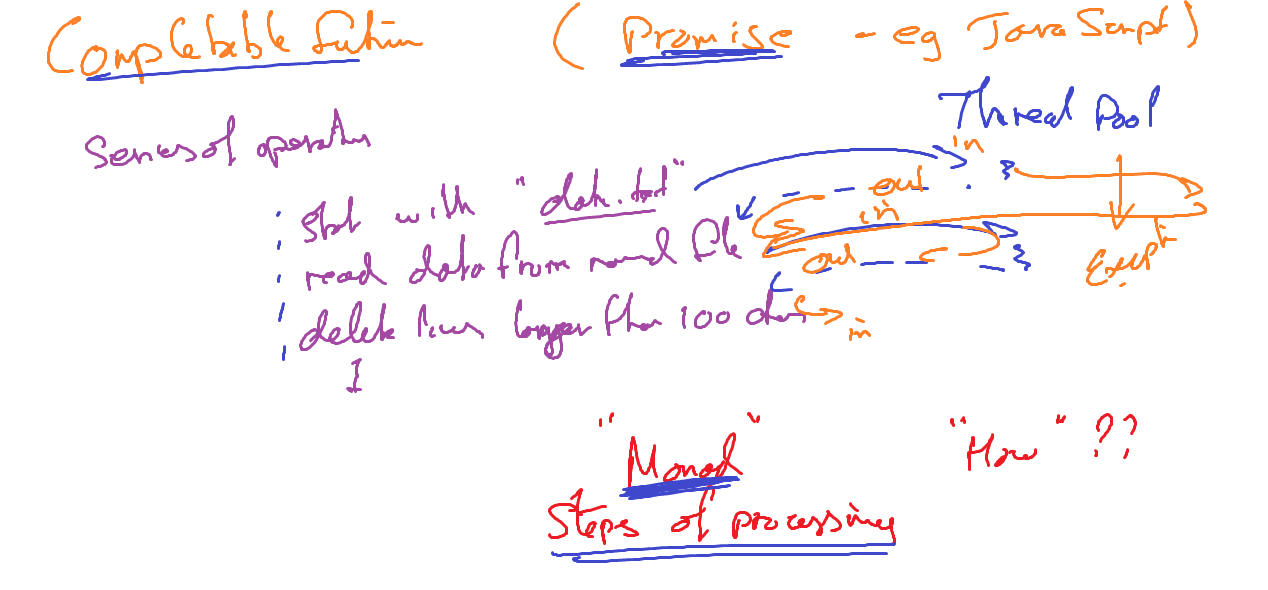 Completable Future ( Promise - eg JavaScript )
Thread Pool
Series of operations
in
start with "data.txt"
out
in
read data from named file
out
Except
delete lines longer than 100 chars
in
"Monad" "How" ??
Steps of processing